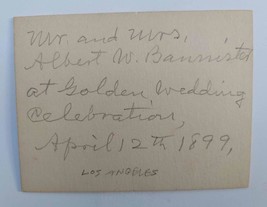 Mr. and Mrs,
Albert W. Bannister
at Golden Wedding
Celebration,
April 12th 1899,
LOS ANGELES